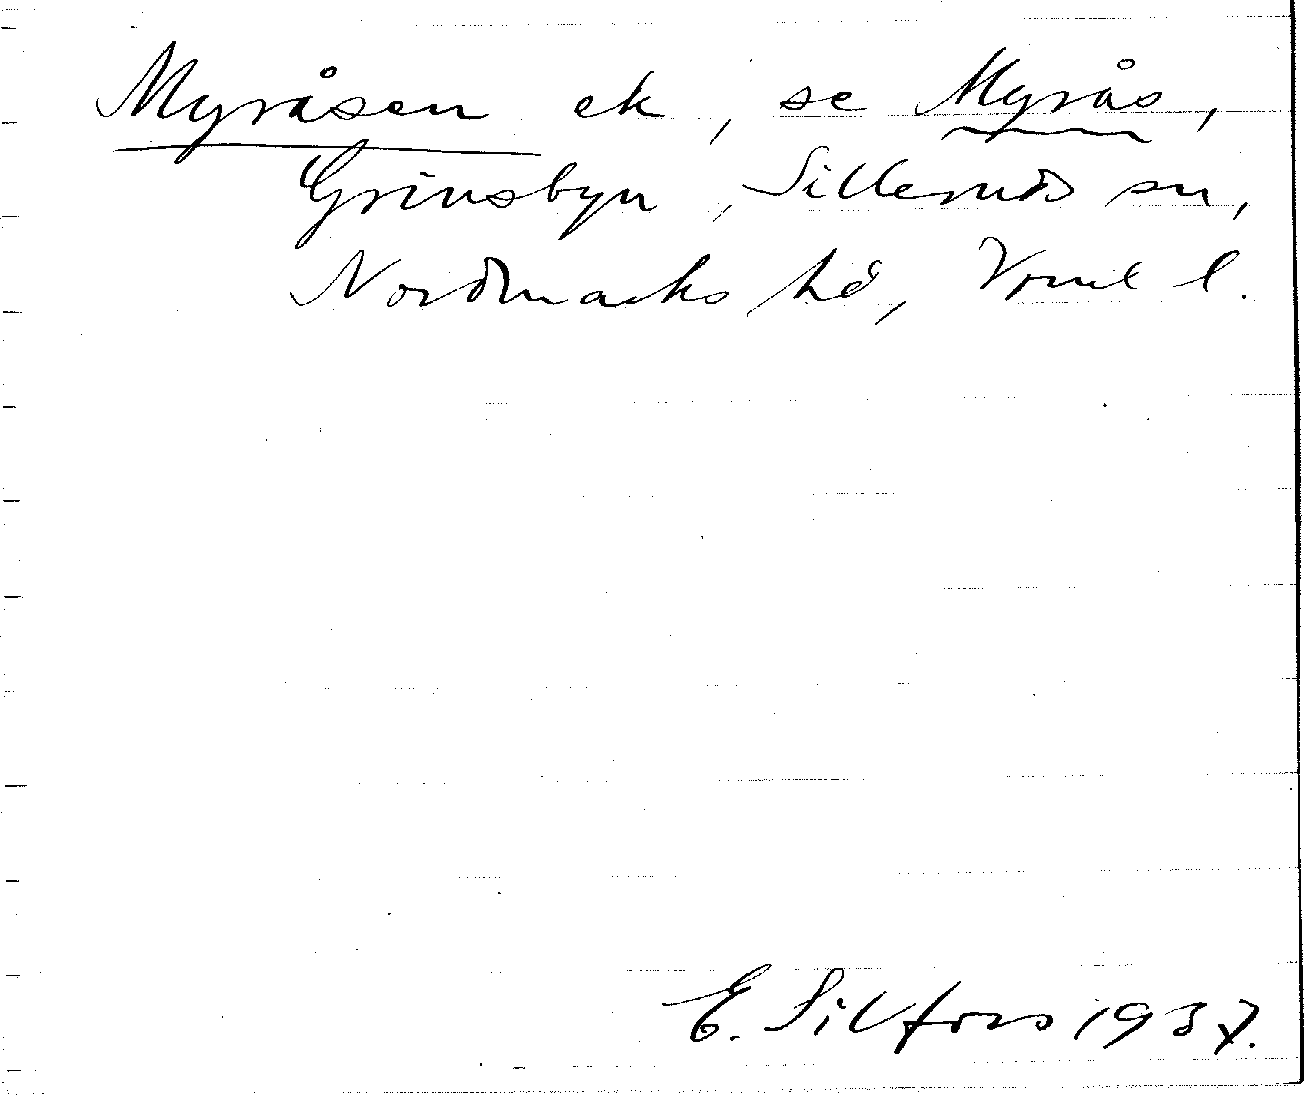 Myråsen ek, se Myrås,
Grinsbyn, Silleruds sn,
Nordmarks hd, Vrml l.
E. Silfors 1937.